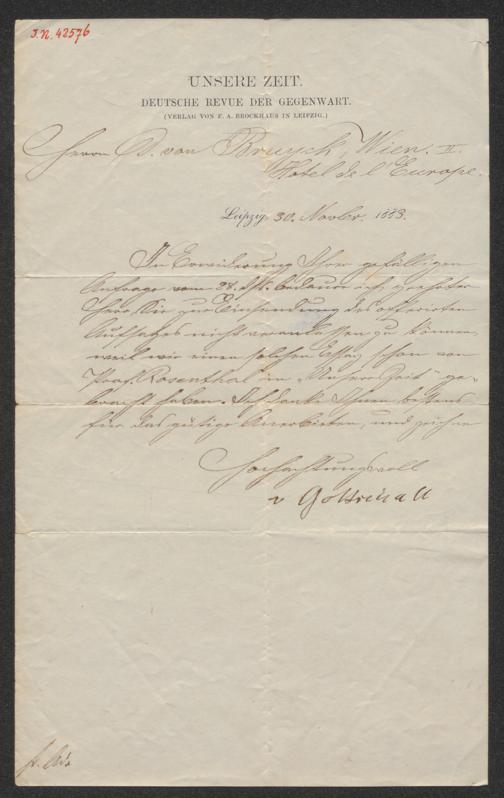 J.N. 42576
UNSERE ZEIT.
DEUTSCHE REVUE DER GEGENWART.
(VERLAG VON F. A. BROCKHAUS IN LEIPZIG.)
Herrn D. von Bruyck, Wien. II.
Hotel de l'Europe.
Leipzig 30. Novbr. 1883.
In Erwiderung Ihrer gefälligen
Anfrage vom 28. d. M. bedaure ich, geehrter
Herr, Sie zur Einsendung des offerirten
Aufsatzes nicht veranlassen zu können,
weil wir einen solchen Essay schon von
Prof. Rosenthal in „Unsere Zeit" ge-
bracht haben. Ich danke Ihnen bestens
für das gütige Anerbieten, und zeichne
Hochachtungsvoll
v Gottschall